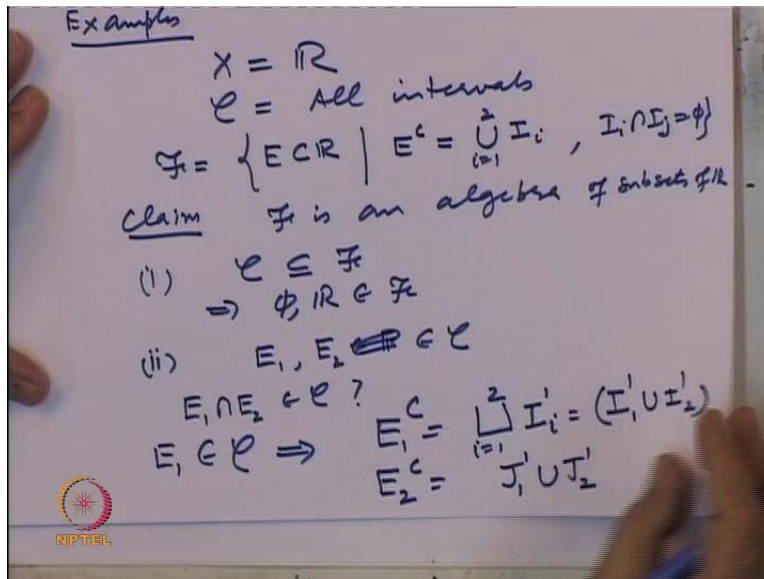 Examples
X = ℝ
𝒞 = All intervals
ℱ = { E ⊂ ℝ | E^c = ⋃_{i=1}^{2} I_i , I_i ∩ I_j = ϕ }
Claim ℱ is an algebra of subsets of ℝ
(i) 𝒞 ⊆ ℱ
⇒ ϕ, ℝ ∈ ℱ
(ii) E_1, E_2 ∈ 𝒞
E_1 ∩ E_2 ∈ 𝒞 ?
E_1 ∈ 𝒞 ⇒ E_1^C = ⨆_{i=1}^{2} I_i' = (I_1' ∪ I_2')
E_2^C = J_1' ∪ J_2'
NPTEL